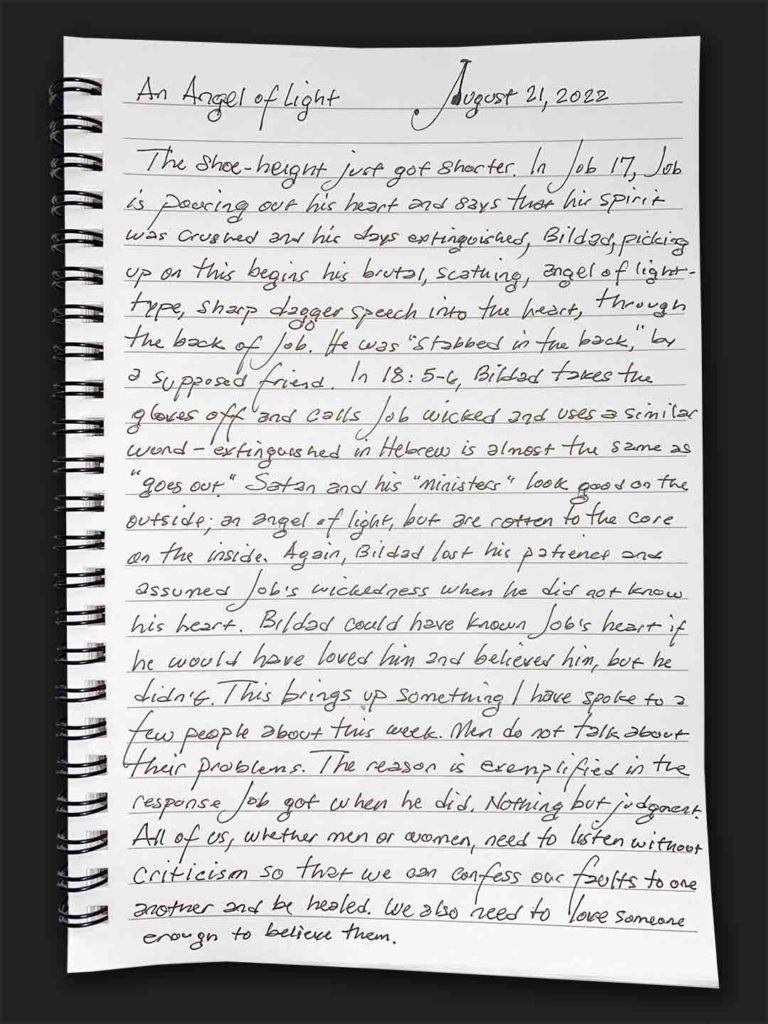 An Angel of Light August 21, 2022
The shoe-height just got shorter. In Job 17, Job
is pouring out his heart and says that his spirit
was crushed and his days extinguished, Bildad, picking
up on this begins his brutal, scathing, angel of light-
type, sharp dagger speech into the heart, through
the back of Job. He was "stabbed in the back," by
a supposed friend. In 18:5-6, Bildad takes the
gloves off and calls Job wicked and uses a similar
word - extinguished in Hebrew is almost the same as
"goes out." Satan and his "ministers" look good on the
outside; an angel of light, but are rotten to the core
on the inside. Again, Bildad lost his patience and
assumed Job's wickedness when he did not know
his heart. Bildad could have known Job's heart if
he would have loved him and believed him, but he
didn't. This brings up something I have spoke to a
few people about this week. Men do not talk about
their problems. The reason is exemplified in the
response Job got when he did. Nothing but judgment.
All of us, whether men or women, need to listen without
criticism so that we can confess our faults to one
another and be healed. We also need to love someone
enough to believe them.